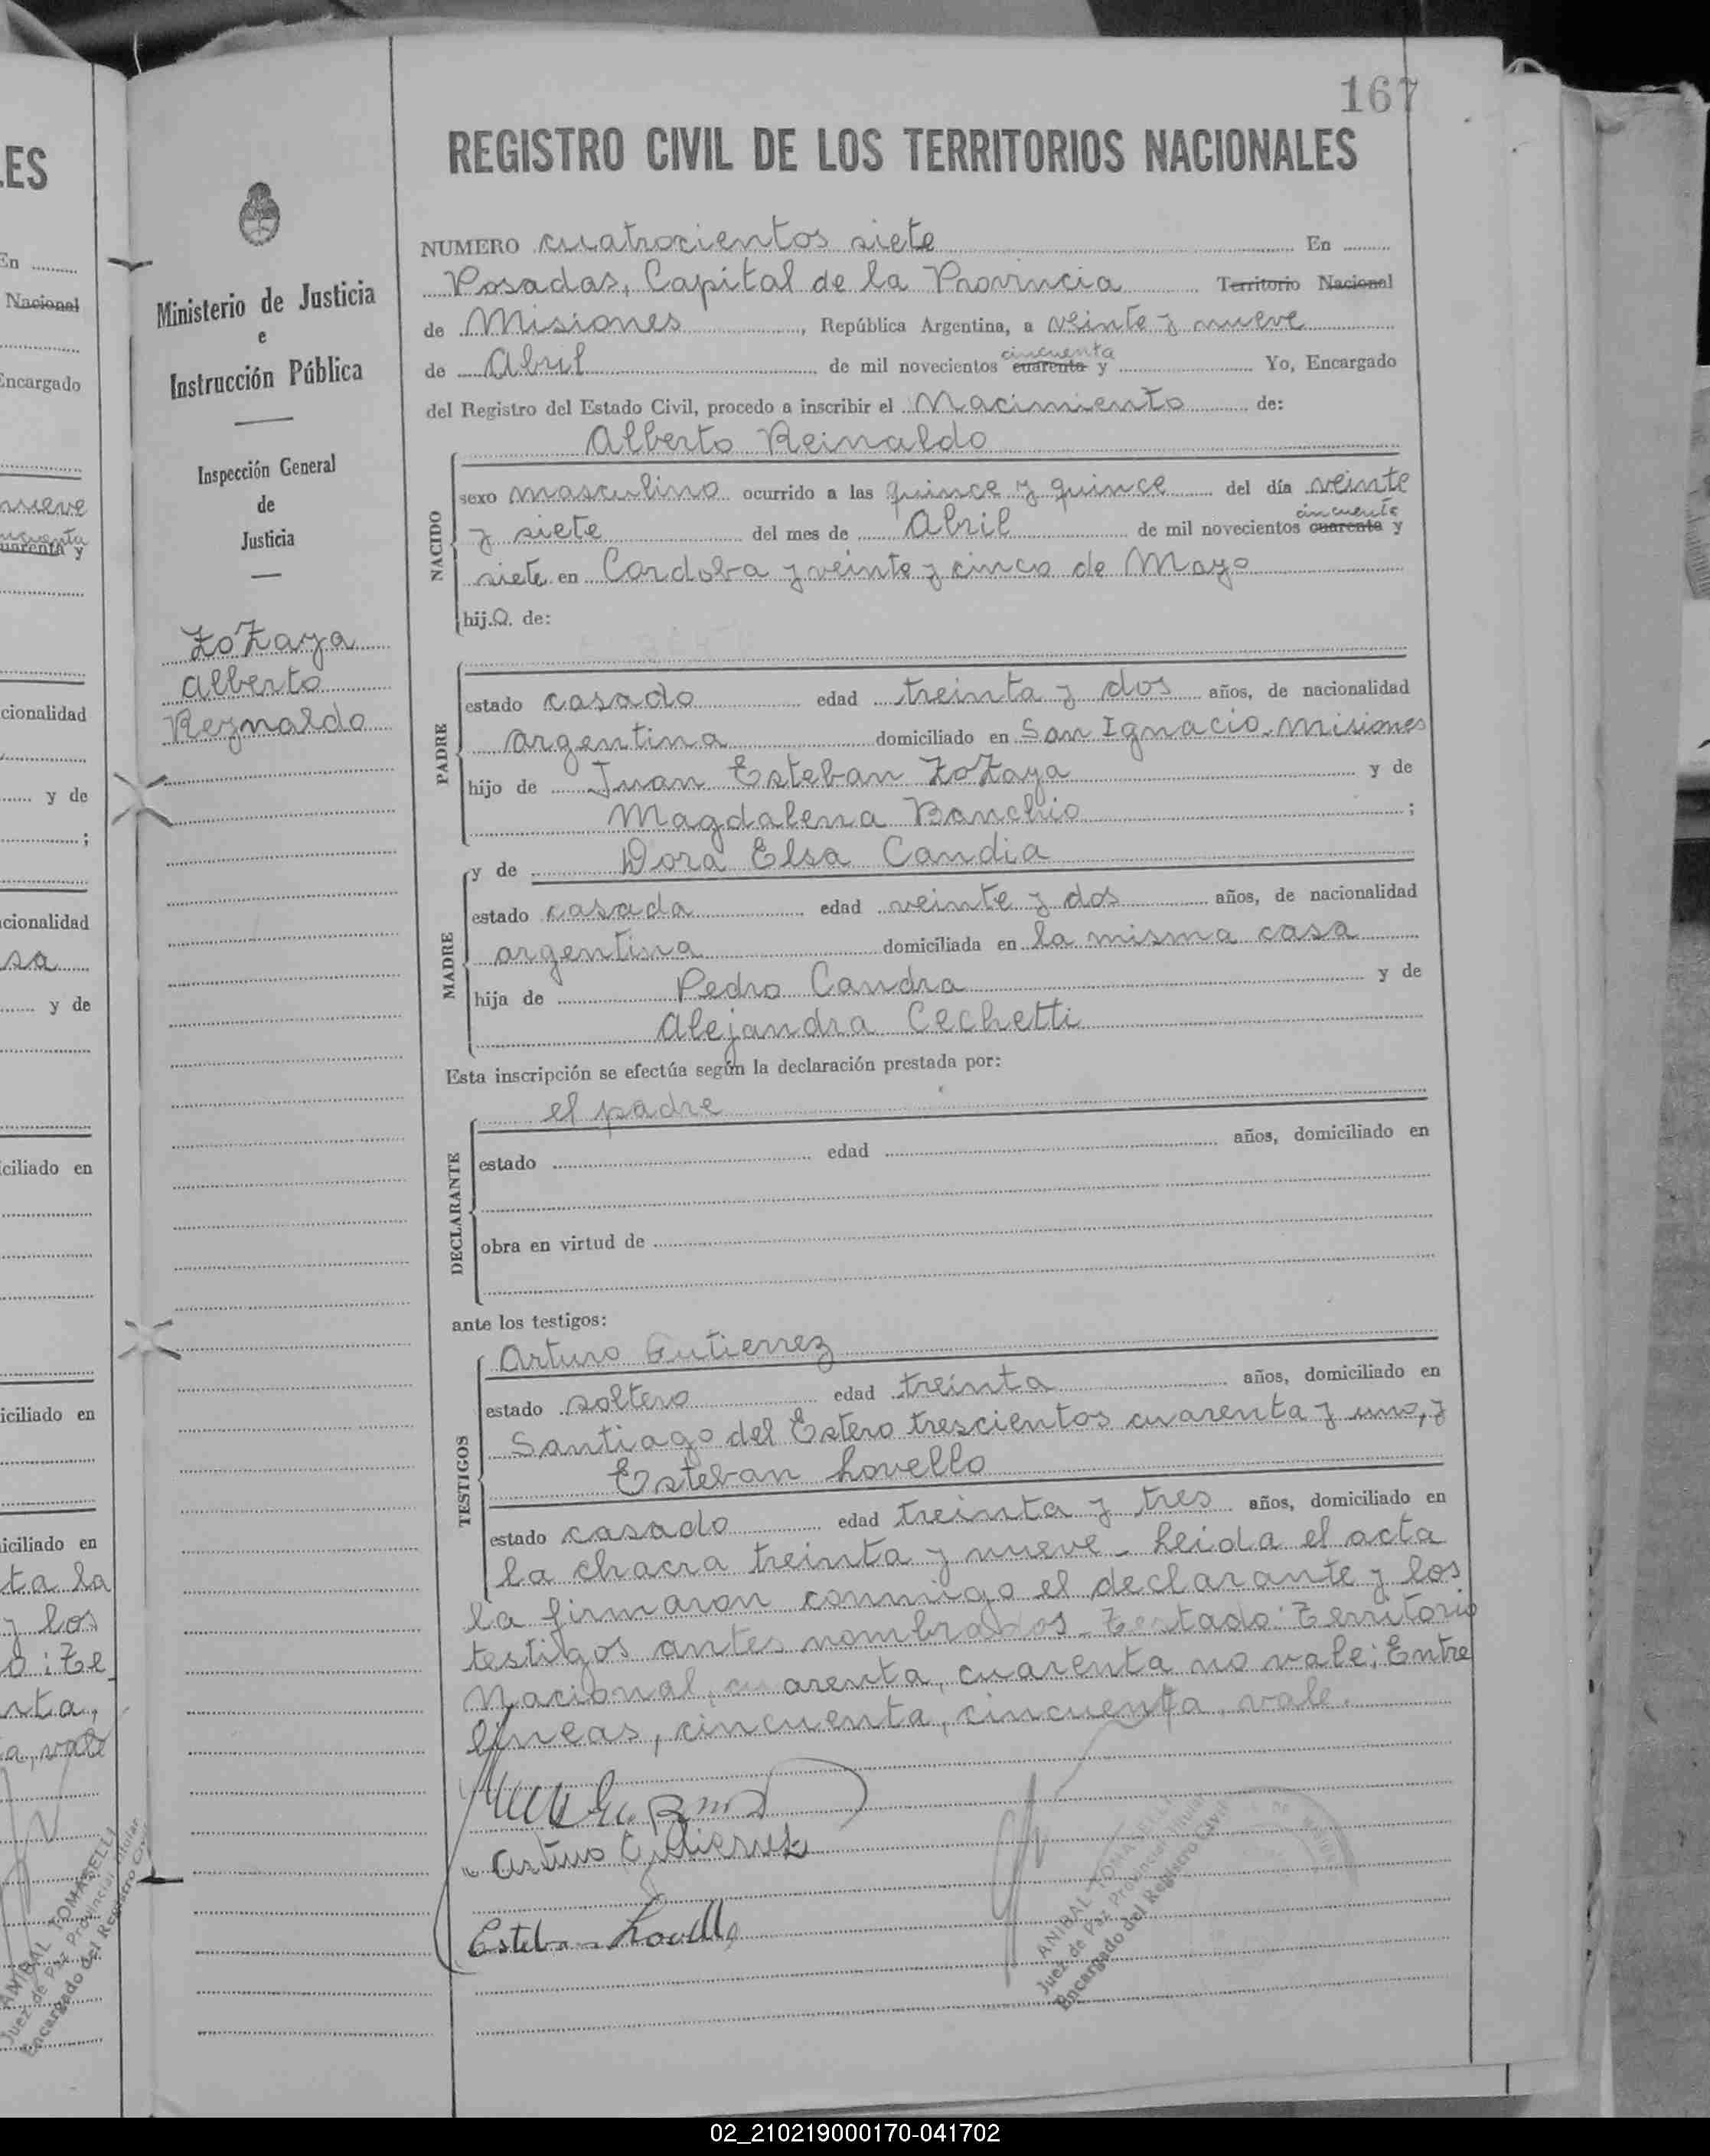 167
REGISTRO CIVIL DE LOS TERRITORIOS NACIONALES
NUMERO cuatrocientos siete En
Posadas, Capital de la Provincia Territorio Nacional
de Misiones, República Argentina, a veinte y nueve
de Abril de mil novecientos cuarenta cincuenta y Yo, Encargado
del Registro del Estado Civil, procedo a inscribir el Nacimiento de:
Alberto Reinaldo
NACIDO
sexo masculino ocurrido a las quince y quince del día veinte
y siete del mes de Abril de mil novecientos cuarenta cincuenta y
siete en Cordoba y veinte y cinco de Mayo
hijo de:
PADRE
estado casado edad treinta y dos años, de nacionalidad
argentina domiciliado en San Ignacio-Misiones
hijo de Juan Esteban ZoZaya y de
Magdalena Banchio ;
y de Dora Elsa Candia
MADRE
estado casada edad veinte y dos años, de nacionalidad
argentina domiciliada en la misma casa
hija de Pedro Candra y de
Alejandra Cechetti
Esta inscripción se efectúa según la declaración prestada por:
el padre
DECLARANTE
estado edad años, domiciliado en
obra en virtud de
ante los testigos:
Arturo Gutierrez
TESTIGOS
estado soltero edad treinta años, domiciliado en
Santiago del Estero trescientos cuarenta y uno, y
Esteban Lovello
estado casado edad treinta y tres años, domiciliado en
la chacra treinta y nueve - Leida el acta
la firmaron conmigo el declarante y los
testigos antes nombrados - Testado: Territorio
Nacional, cuarenta, cuarenta no vale: Entre
lineas, cincuenta, cincuenta, vale.
Arturo Gutierrez
Esteban Lovello
ANIBAL TOMASELLI
Juez de Paz Provincial Titular
Encargado del Registro Civil
Ministerio de Justicia
e
Instrucción Pública
Inspección General
de
Justicia
ZoZaya
Alberto
Reynaldo
LES
En
Nacional
Encargado
nueve
cincuenta
cuarenta y
cionalidad
y de
;
cionalidad
sa
y de
ciliado en
iciliado en
iciliado en
ta la
y los
o: Te
nta,
a, vale
ANIBAL TOMASELLI
Juez de Paz Provincial Titular
Encargado del Registro Civil
02_210219000170-041702